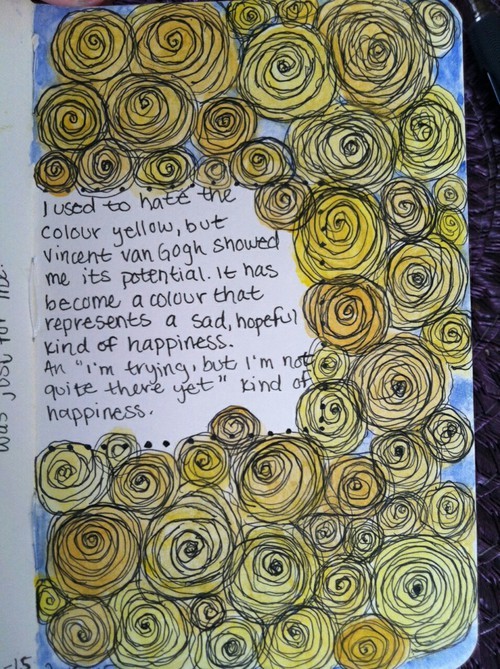 I used to hate the
colour yellow, but
Vincent van Gogh showed
me its potential. It has
become a colour that
represents a sad, hopeful
kind of happiness.
An "I'm trying, but I'm not
quite there yet" kind of
happiness.
was just for me.
-15